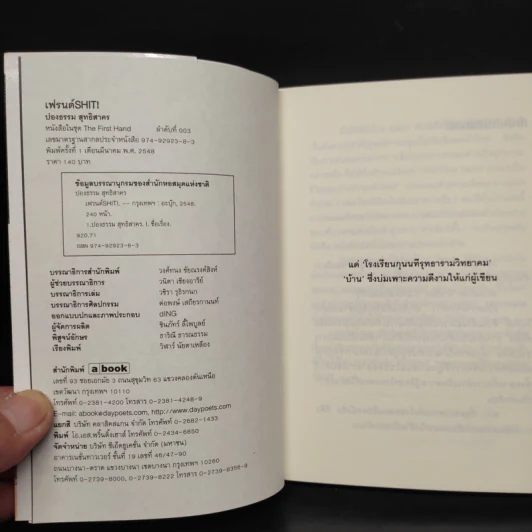 เฟรนด์SHIT!
ปองธรรม สุทธิสาคร
หนังสือในชุด The First Hand ลำดับที่ 003
เลขมาตรฐานสากลประจำหนังสือ 974-92923-8-3
พิมพ์ครั้งที่ 1 เดือนมีนาคม พ.ศ. 2548
ราคา 140 บาท
ข้อมูลบรรณานุกรมของสำนักหอสมุดแห่งชาติ
ปองธรรม สุทธิสาคร
เฟรนด์SHIT!. -- กรุงเทพฯ : อะบุ๊ก, 2548.
240 หน้า.
1.ปองธรรม สุทธิสาคร. I. ชื่อเรื่อง.
920.71
ISBN 974-92923-8-3
บรรณาธิการสำนักพิมพ์ วงศ์ทนง ชัยณรงค์สิงห์
ผู้ช่วยบรรณาธิการ วนิดา เชียงอารีย์
บรรณาธิการเล่ม วชิรา รุธิรกนก
บรรณาธิการศิลปกรรม ต่อพงษ์ เสถียรกานนท์
ออกแบบปกและภาพประกอบ dING
ผู้จัดการผลิต ชินภัทร์ ลี้ไพบูลย์
พิสูจน์อักษร ธารินี ธารณธรรม
เรียงพิมพ์ วิฬาร์ นัยตาเหลือง
สำนักพิมพ์ a book
เลขที่ 93 ซอยเอกมัย 3 ถนนสุขุมวิท 63 แขวงคลองตันเหนือ
เขตวัฒนา กรุงเทพฯ 10110
โทรศัพท์ 0-2381-4200 โทรสาร 0-2381-4248-9
E-mail: abook@daypoets.com, http://www.daypoets.com
แยกสี บริษัท คลาสิคสแกน จำกัด โทรศัพท์ 0-2682-1433
พิมพ์ โอ.เอส.พริ้นติ้งเฮาส์ โทรศัพท์ 0-2434-6850
จัดจำหน่าย บริษัท ซีเอ็ดยูเคชั่น จำกัด (มหาชน)
อาคารเนชั่นทาวเวอร์ ชั้นที่ 19 เลขที่ 46/87-90
ถนนบางนา-ตราด แขวงบางนา เขตบางนา กรุงเทพฯ 10260
โทรศัพท์ 0-2739-8000, 0-2739-8222 โทรสาร 0-2739-8356-9
แด่ 'โรงเรียนกุนนทีรุทธารามวิทยาคม'
'บ้าน' ซึ่งบ่มเพาะความดีงามให้แก่ผู้เขียน